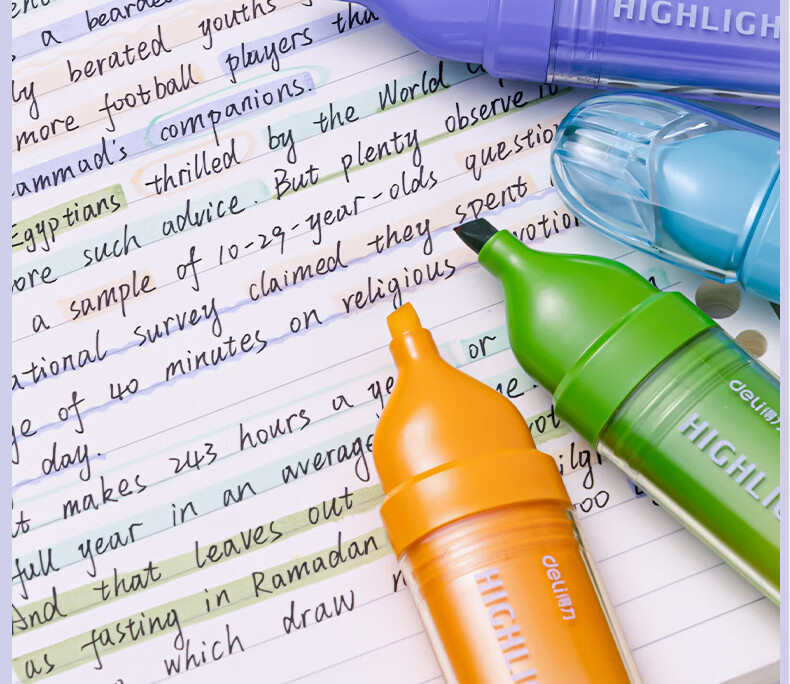 a bearded
berated youths
more football players tha
ammad's companions.
Egyptians thrilled by the World
ore such advice. But plenty observe
a sample of 10-29-year-olds questio
ational survey claimed they spent
ge of 40 minutes on religious votion
day.
t makes 243 hours a ye or
full year in an average me.
And that leaves out vot
as fasting in Ramadan ilgr
which draw too
HIGHLIGH
deli得力
HIGHLIG
deli得力
HIGHLI